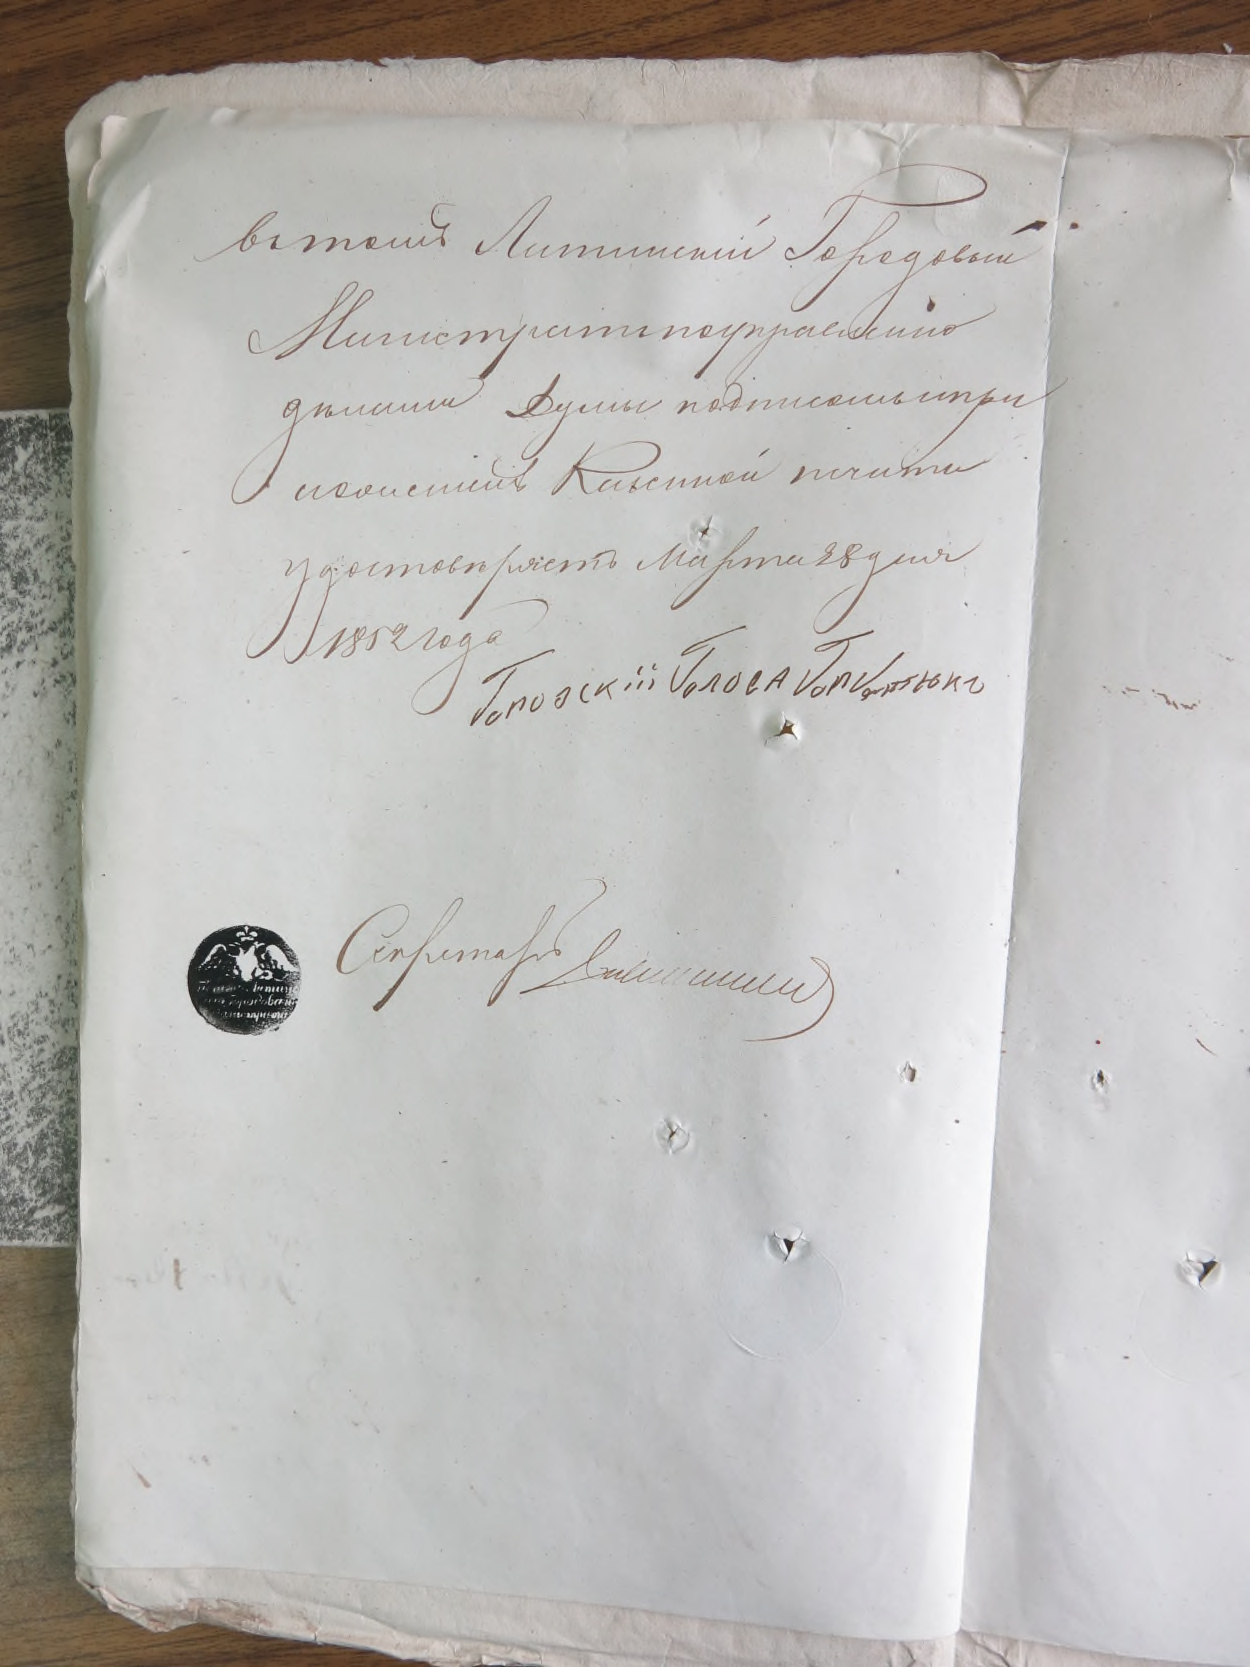 въ томъ Литинскій Городовый
Магистратъ поуправленію
дѣлами Думы подписомъ и при
ложеніемъ Казенной печати
удостовѣряетъ Марта 28 дня
1852 года
Городскій Голова
Секретарь